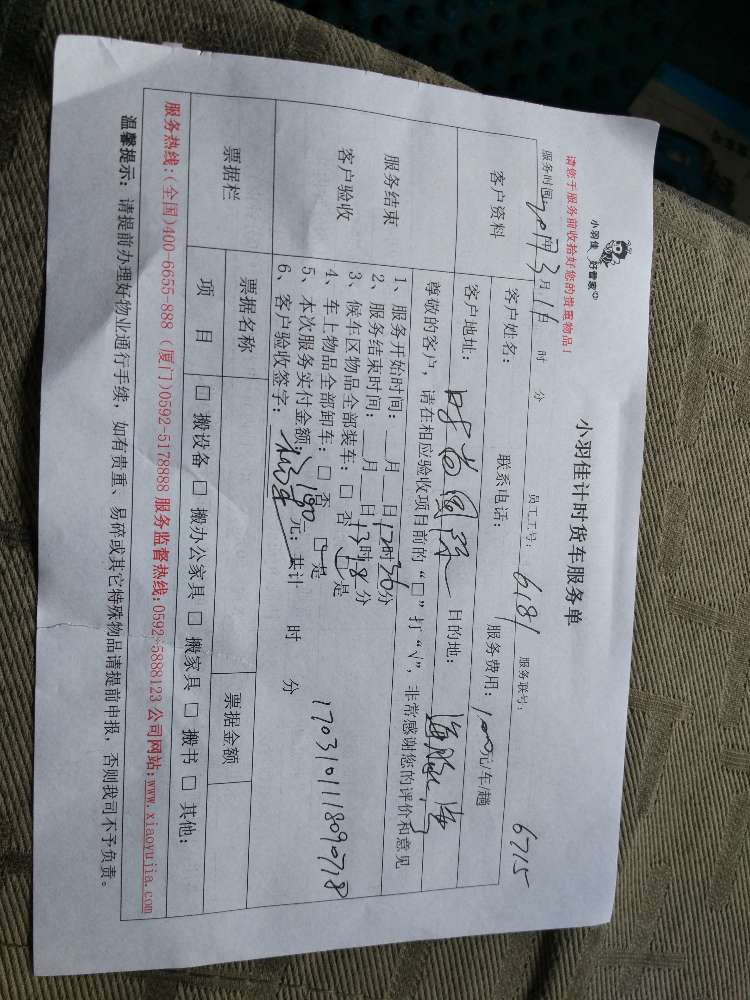 小羽佳 好管家
小羽佳计时货车服务单
请您于服务前收拾好您的贵重物品！
服务时间: 年3月16日 时 分 员工工号: 6181 服务联号: 6715
客户资料 客户姓名: 联系电话: 服务费用: 100元/车/趟
客户地址: 时尚国际 目的地:
尊敬的客户，请在相应验收项目前的“□”打“√”，非常感谢您的评价和意见
服务结束
客户验收
1、服务开始时间: 月 日12时36分
2、服务结束时间: 月 日13时18分
3、候车区物品全部装车: □ 否 □ 是
4、车上物品全部卸车: □ 否 □ 是
5、本次服务实付金额: 180元; 共计 时 分
6、客户验收签字:
1703101118090718
票据栏 票据名称 票据金额
项 目 □ 搬设备 □ 搬办公家具 □ 搬家具 □ 搬书 □ 其他:
服务热线:(全国)400-6655-888 (厦门)0592-5178888 服务监督热线:0592-5888123 公司网站:www.xiaoyujia.com
温馨提示: 请提前办理好物业通行手续，如有贵重、易碎或其它特殊物品请提前申报，否则我司不予负责。